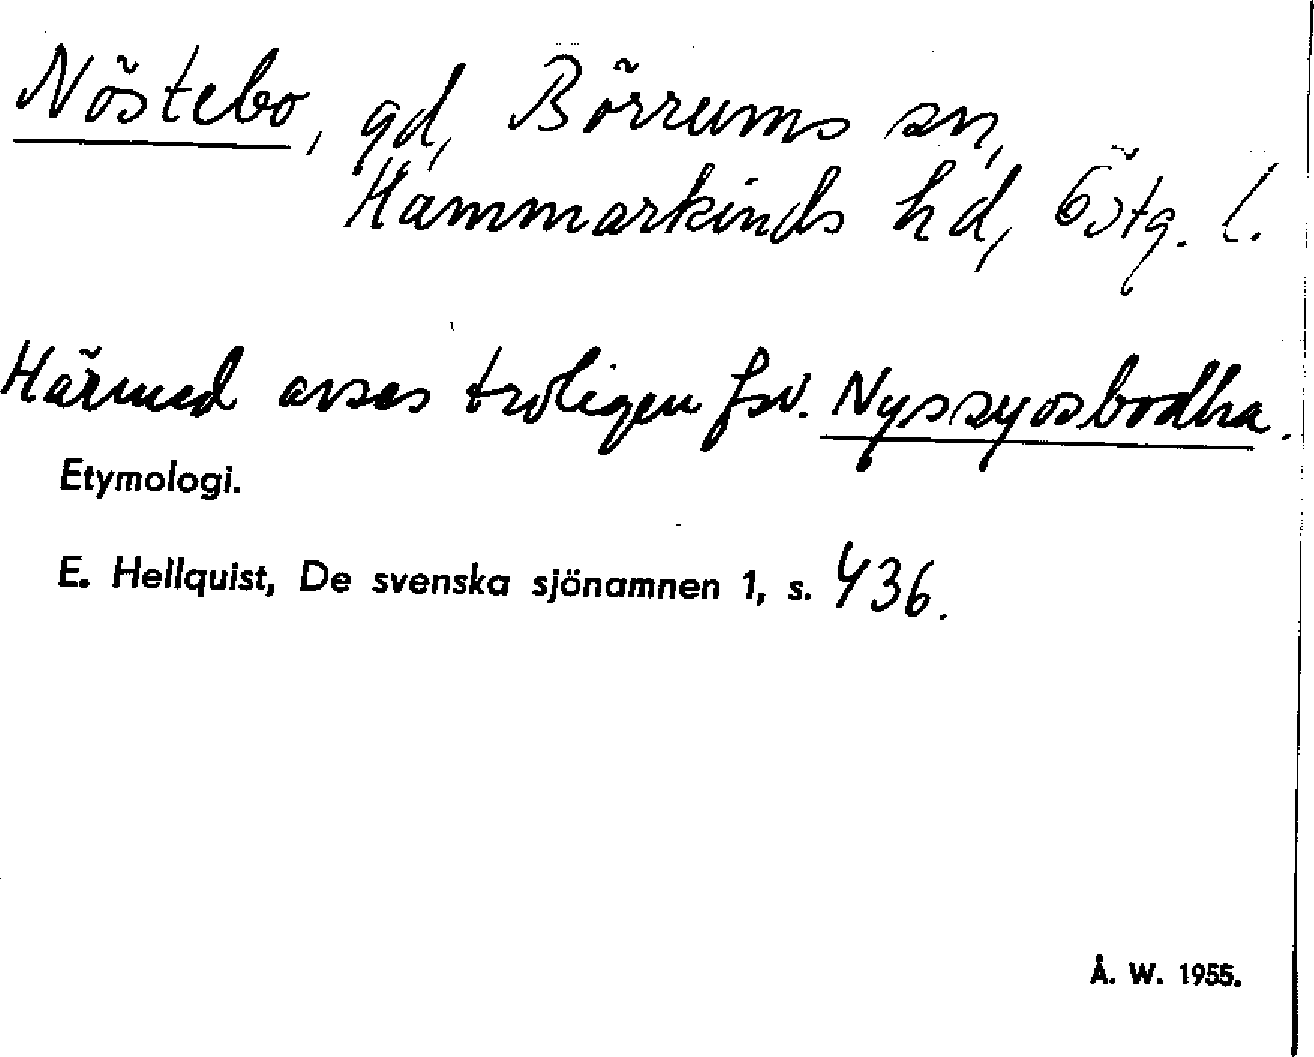 Nöstebo, gd, Börrums sn,
Hammarkinds hd, Östg. l.
Härmed avses troligen fsv. Nyssyosbodha.
Etymologi.
E. Hellquist, De svenska sjönamnen 1, s. 436.
Å. W. 1955.